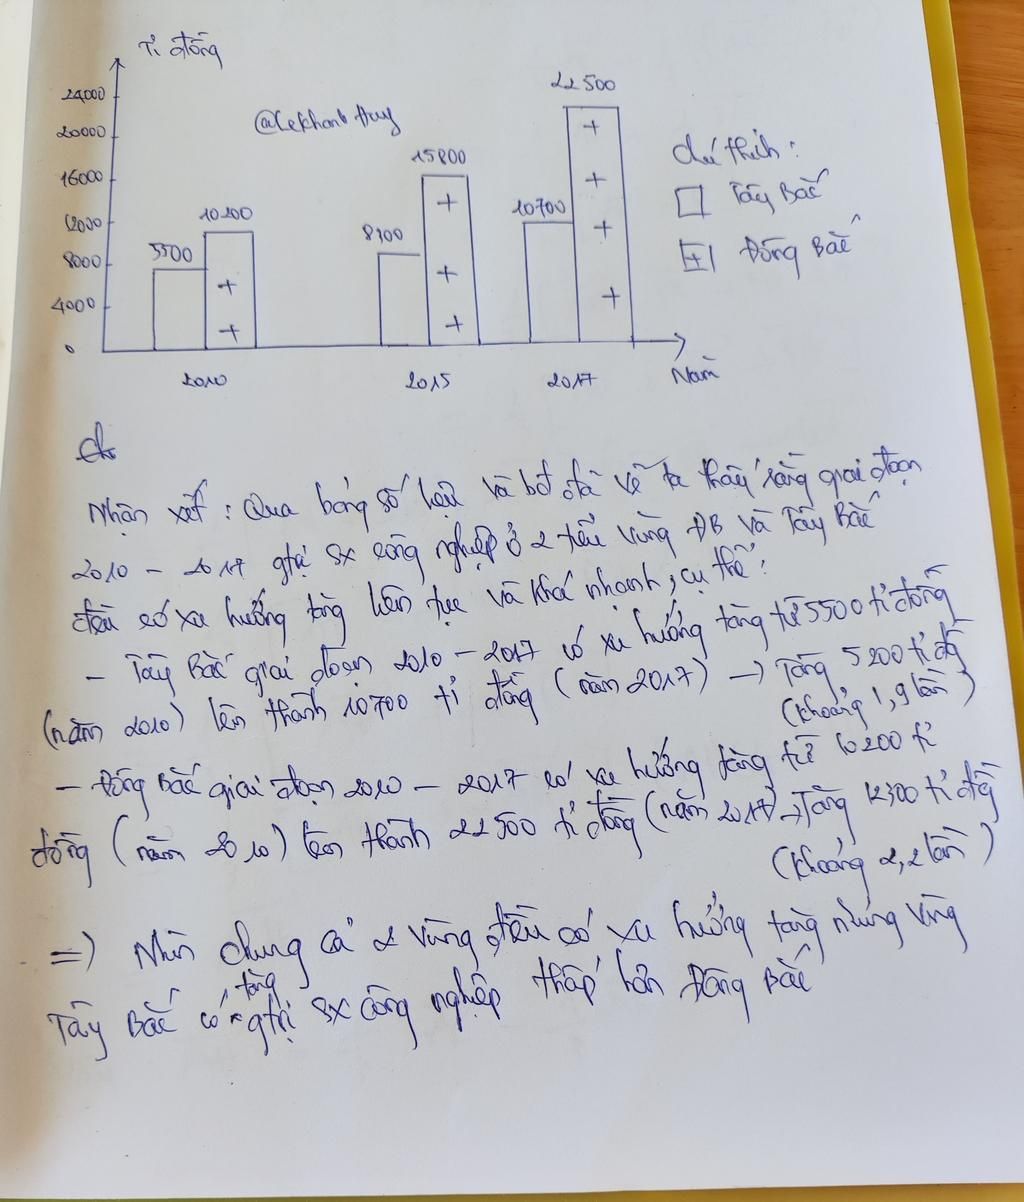 Tỉ đồng
24000
20000
16000
12000
8000
4000
0
@Lekhanh Huy
5500
10200
8300
15800
10700
22500
2010
2015
2017
Năm
Chú thích:
Tây Bắc
Đông Bắc
Nhận xét: Qua bảng số liệu và bđ đã vẽ ta thấy rằng giai đoạn
2010 - 2017 gtrị sx công nghiệp ở 2 tiểu vùng ĐB và Tây Bắc
đều có xu hướng tăng liên tục và khá nhanh, cụ thể:
- Tây Bắc giai đoạn 2010 - 2017 có xu hướng tăng từ 5500 tỉ đồng
(năm 2010) lên thành 10700 tỉ đồng (năm 2017) → Tăng 5200 tỉ đg
(khoảng 1,9 lần)
- Đông Bắc giai đoạn 2010 - 2017 có xu hướng tăng từ 10200 tỉ
đồng (năm 2010) lên thành 22500 tỉ đồng (năm 2017 → Tăng 12300 tỉ đg
(khoảng 2,2 lần)
=> Nhìn chung cả 2 vùng đều có xu hướng tăng nhưng vùng
Tây Bắc có tăng gtrị sx công nghiệp thấp hơn Đông Bắc